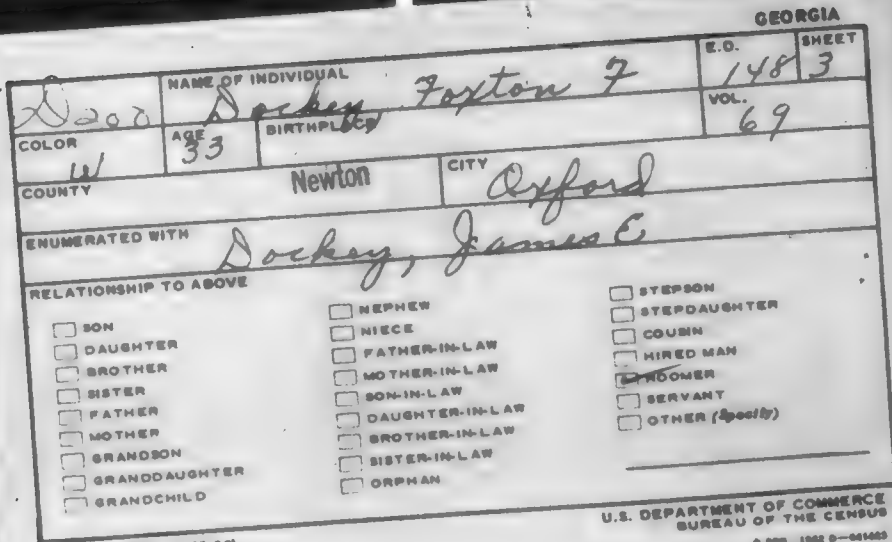 GEORGIA
NAME OF INDIVIDUAL
E.D.
SHEET
D200 Dockey Foxton F 148 3
COLOR
AGE
BIRTHPLACE
VOL.
W 33 69
COUNTY Newton CITY Oxford
ENUMERATED WITH
Dockey, James E
RELATIONSHIP TO ABOVE
SON
DAUGHTER
BROTHER
SISTER
FATHER
MOTHER
GRANDSON
GRANDDAUGHTER
GRANDCHILD
NEPHEW
NIECE
FATHER-IN-LAW
MOTHER-IN-LAW
SON-IN-LAW
DAUGHTER-IN-LAW
BROTHER-IN-LAW
SISTER-IN-LAW
ORPHAN
STEPSON
STEPDAUGHTER
COUSIN
HIRED MAN
ROOMER
SERVANT
OTHER (Specify)
U.S. DEPARTMENT OF COMMERCE
BUREAU OF THE CENSUS